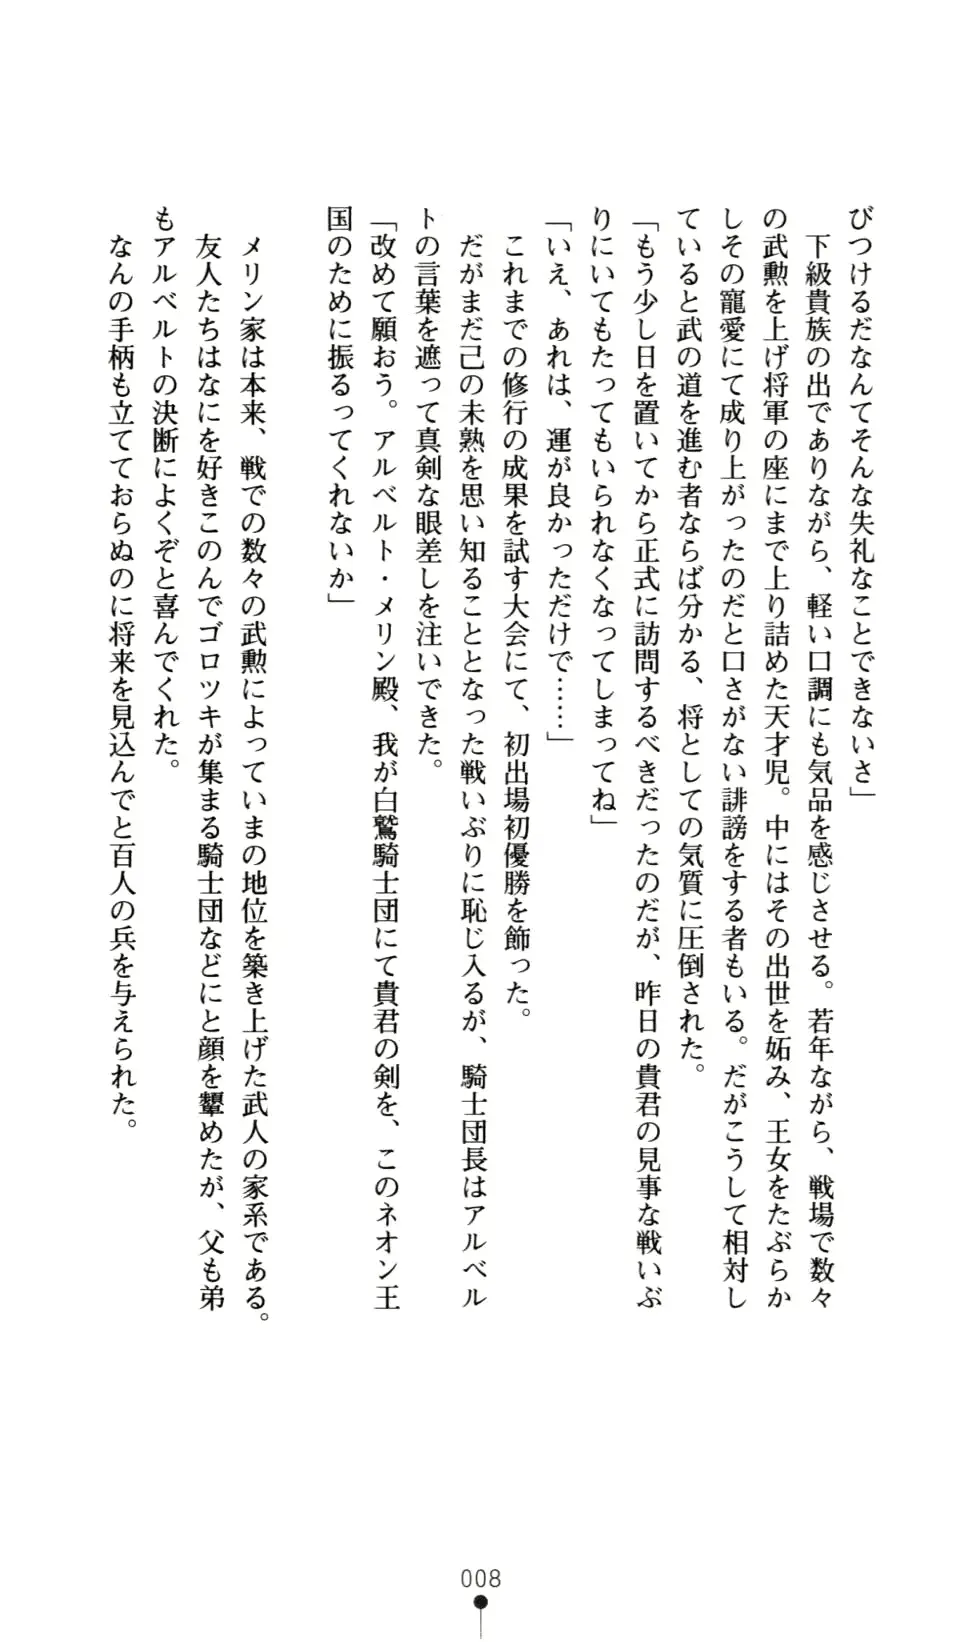 びつけるだなんてそんな失礼なことできないさ」
　下級貴族の出でありながら、軽い口調にも気品を感じさせる。若年ながら、戦場で数々
の武勲を上げ将軍の座にまで上り詰めた天才児。中にはその出世を妬み、王女をたぶらか
しその寵愛にて成り上がったのだと口さがない誹謗をする者もいる。だがこうして相対し
ていると武の道を進む者ならば分かる、将としての気質に圧倒された。
「もう少し日を置いてから正式に訪問するべきだったのだが、昨日の貴君の見事な戦いぶ
りにいてもたってもいられなくなってしまってね」
「いえ、あれは、運が良かっただけで……」
　これまでの修行の成果を試す大会にて、初出場初優勝を飾った。
　だがまだ己の未熟を思い知ることとなった戦いぶりに恥じ入るが、騎士団長はアルベル
トの言葉を遮って真剣な眼差しを注いできた。
「改めて願おう。アルベルト・メリン殿、我が白鷲騎士団にて貴君の剣を、このネオン王
国のために振るってくれないか」
　メリン家は本来、戦での数々の武勲によっていまの地位を築き上げた武人の家系である。
　友人たちはなにを好きこのんでゴロツキが集まる騎士団などにと顔を顰めたが、父も弟
もアルベルトの決断によくぞと喜んでくれた。
　なんの手柄も立てておらぬのに将来を見込んでと百人の兵を与えられた。
008